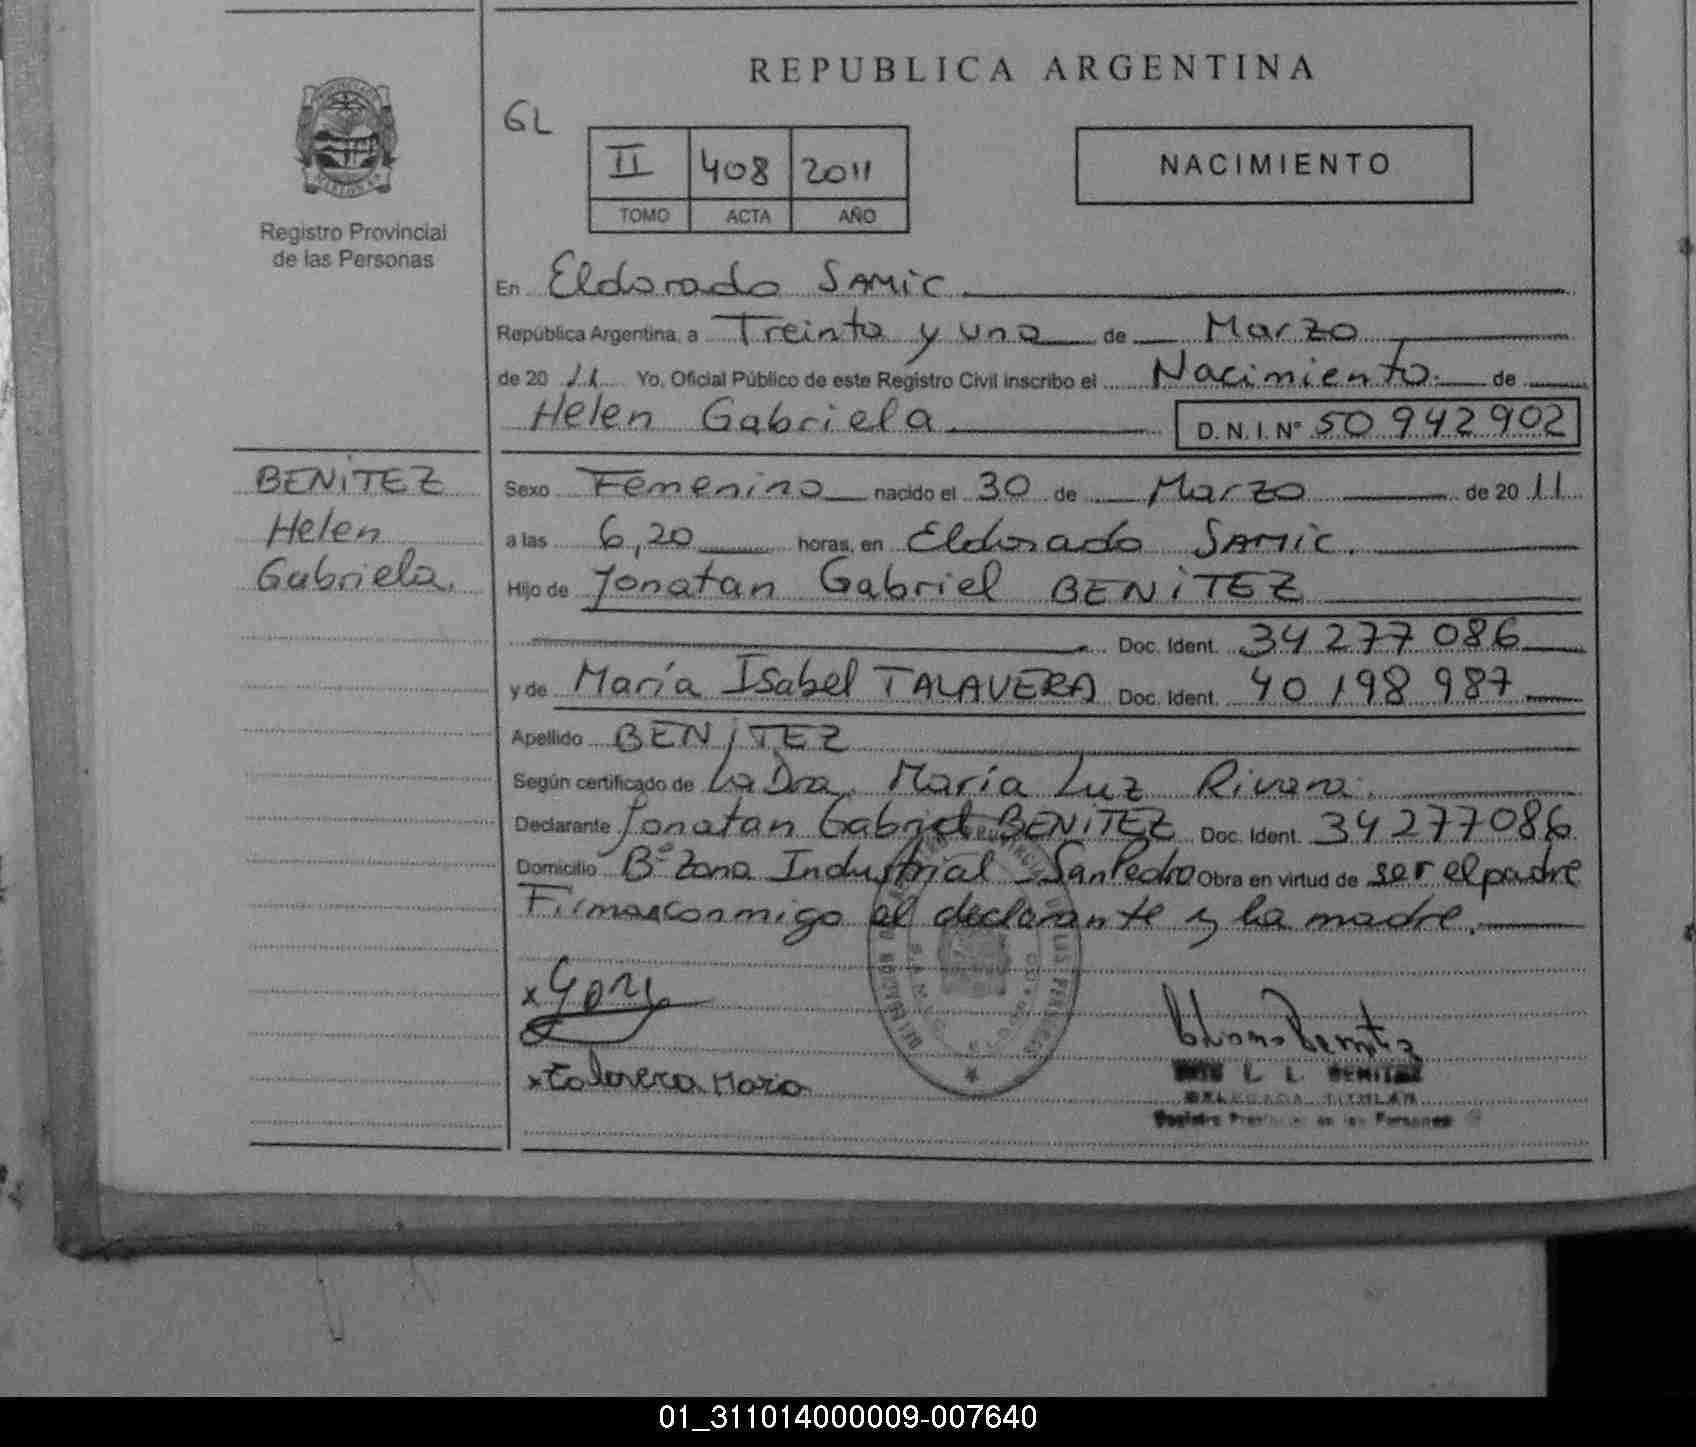 REPUBLICA ARGENTINA
GL
II 408 2011
TOMO ACTA AÑO
NACIMIENTO
Registro Provincial
de las Personas
En Eldorado SAMiC
República Argentina, a Treinta y uno de Marzo
de 20 11 Yo, Oficial Público de este Registro Civil inscribo el Nacimiento de
Helen Gabriela D.N.I. Nº 50 942 902
BENiTEZ
Helen
Gabriela.
Sexo Femenino nacido el 30 de Marzo de 20 11
a las 6,20 horas, en Eldorado SAMiC.
Hijo de Jonatan Gabriel BENiTEZ
Doc. Ident. 34 277 086
y de María Isabel TALAVERA Doc. Ident. 40 198 987
Apellido BENiTEZ
Según certificado de La Dra. María Luz Rivara.
Declarante Jonatan Gabriel BENiTEZ Doc. Ident. 34 277 086
Domicilio Bº Zona Industrial - San Pedro Obra en virtud de ser el padre
Firman conmigo el declarante y la madre.
x
x Talavera Maria
L. L. BENITEZ
DELEGADA TITULAR
Registro Provincial de las Personas
01_311014000009-007640